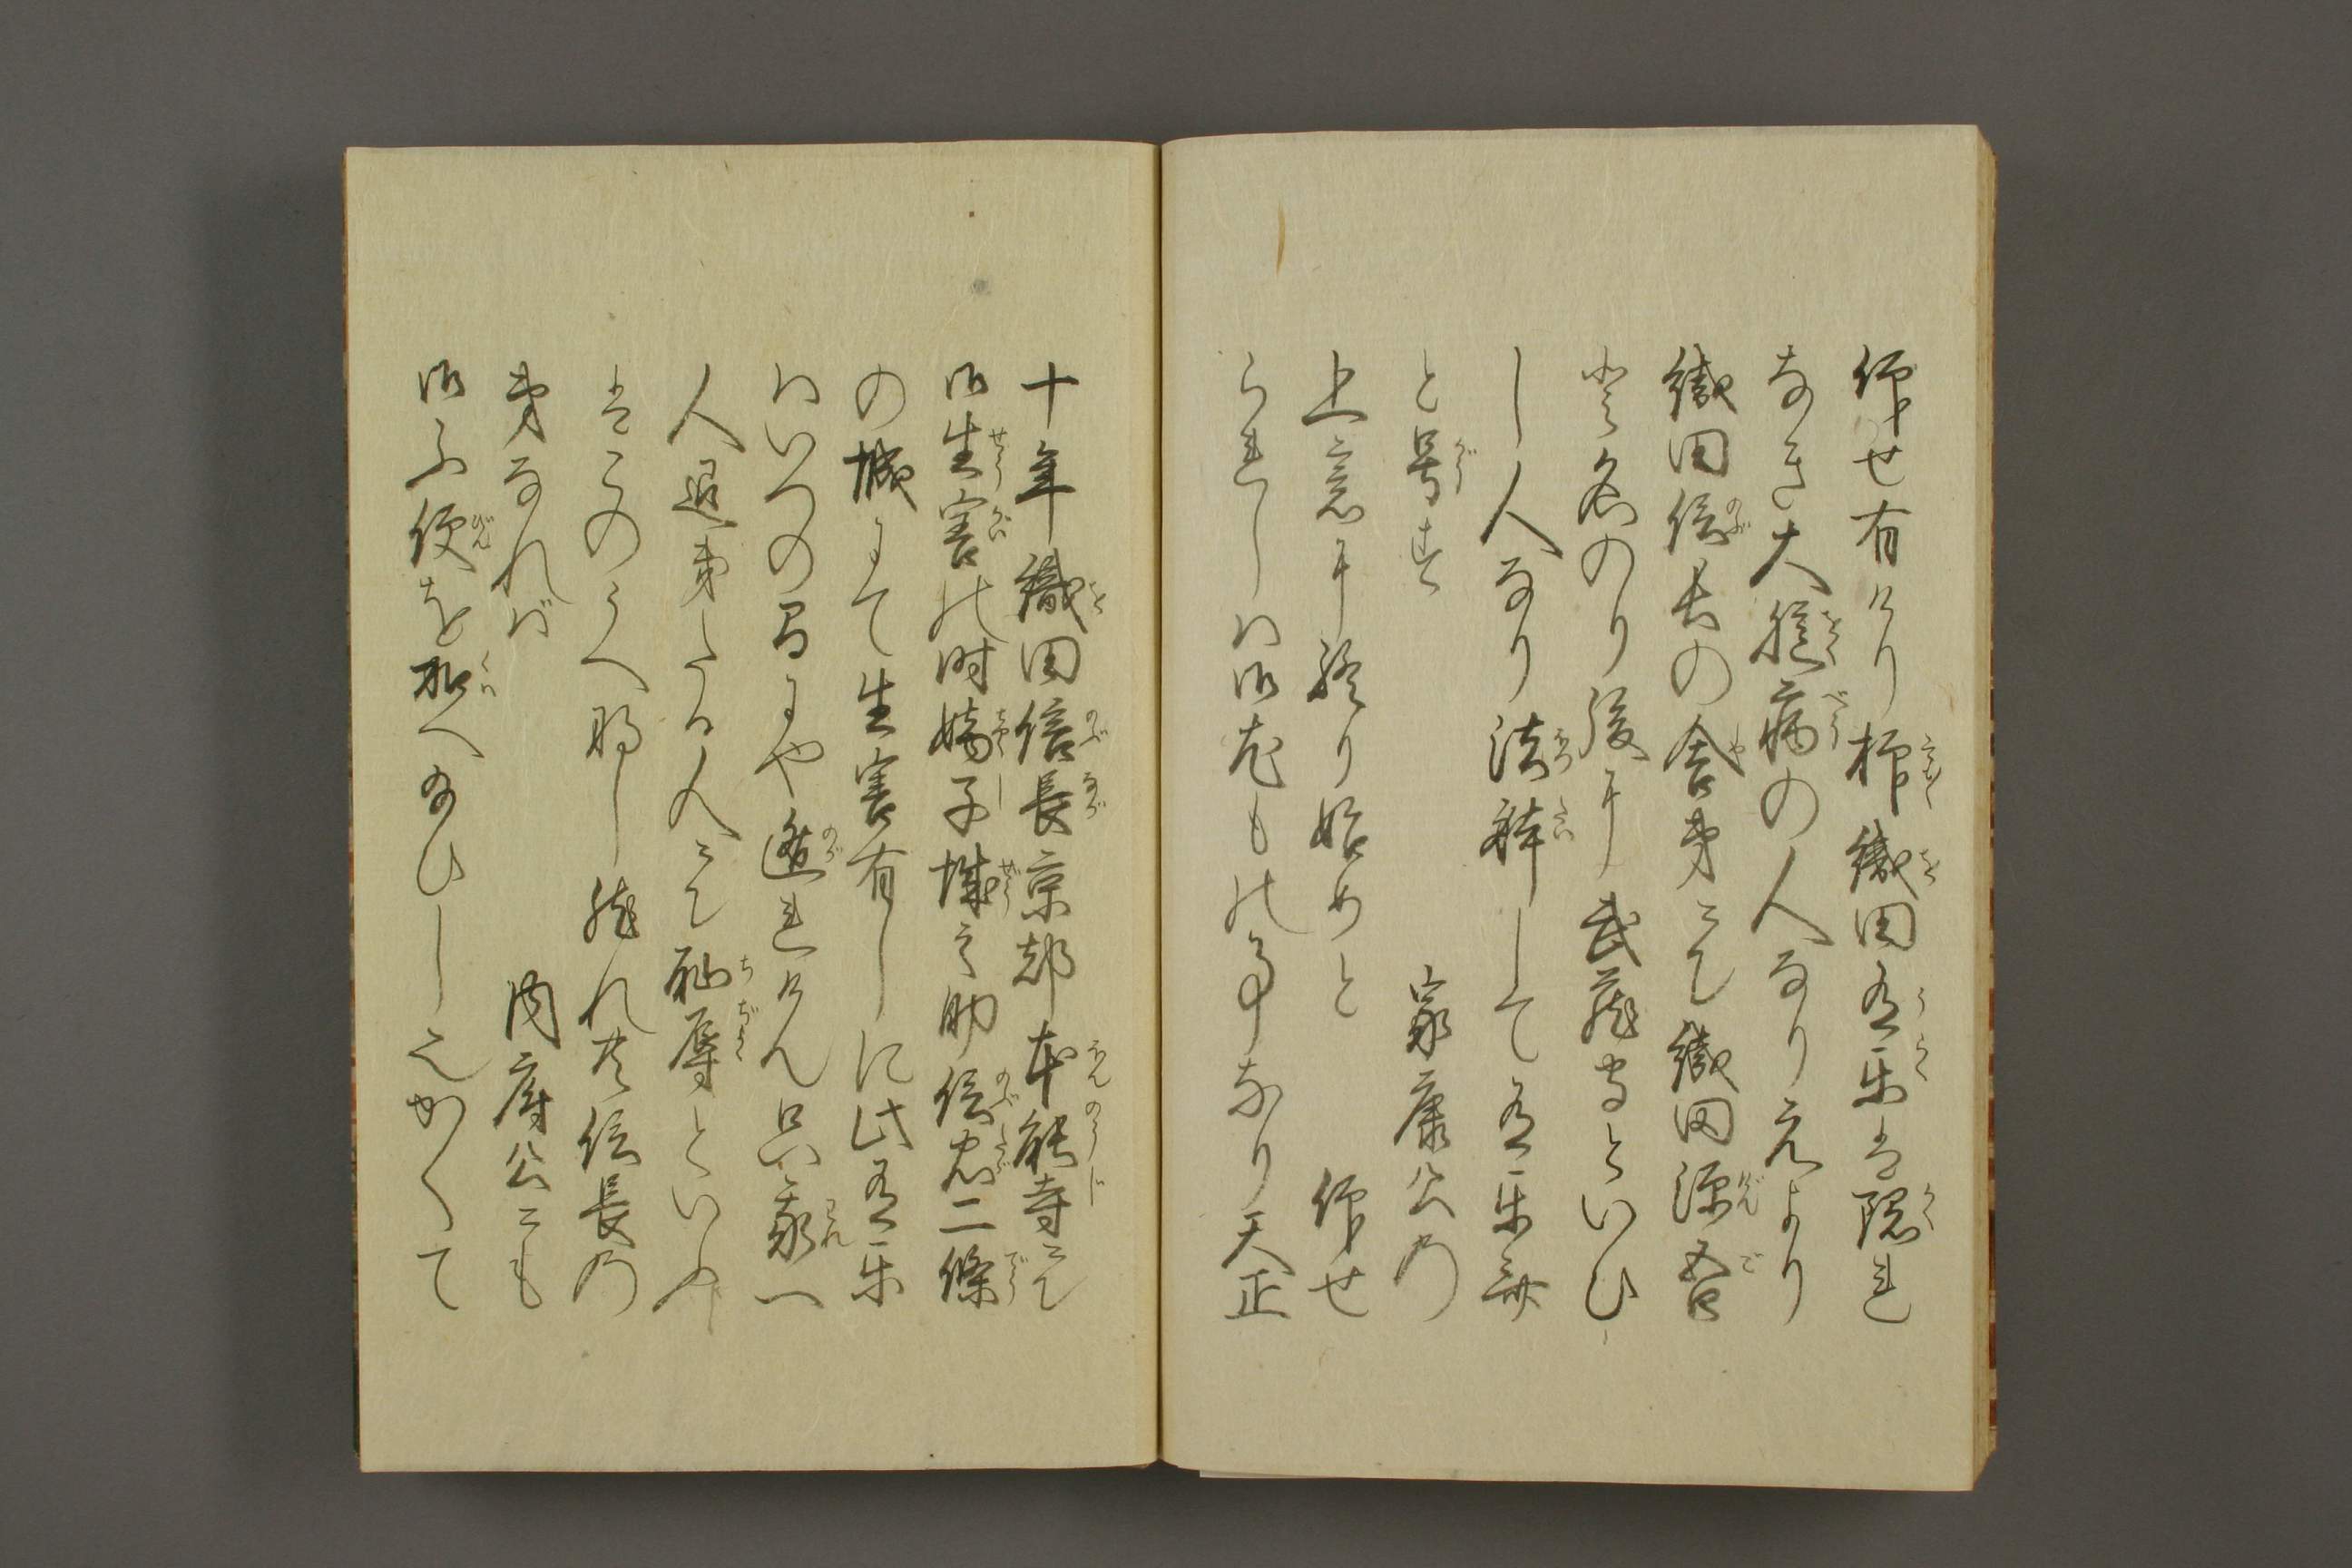 仰せ有けり抑織田有楽は隠れ
なき大臆病の人なり元より
織田信長の舎弟にて織田源吾
と名のり後に武蔵守といひ
し人なり法躰して有楽斎
と号す　　　　家康公の
上意に終り始めと　仰せ
られしハ御尤もの事なり天正
十年織田信長京都本能寺にて
御生害の時嫡子城之助信忠二條
の城にて生害有しに此有楽
ハいつの間にや遁れけん只我一人
人退弟たる人にて耻辱といふ
はこのうへ那し然れ共信長の
弟なれば　　　内府公にも
御不便を加へ給ひしとかくて